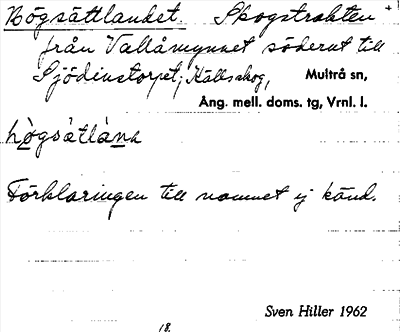 Högsättlandet. Skogstrakten +
från Vallåmynnet söderut till
Sjödinstorpet, Källskog, Multrå sn,
Ång. mell. doms. tg, Vrnl. l.
hògsàtlànd
Förklaringen till namnet ej känd.
Sven Hiller 1962
18.